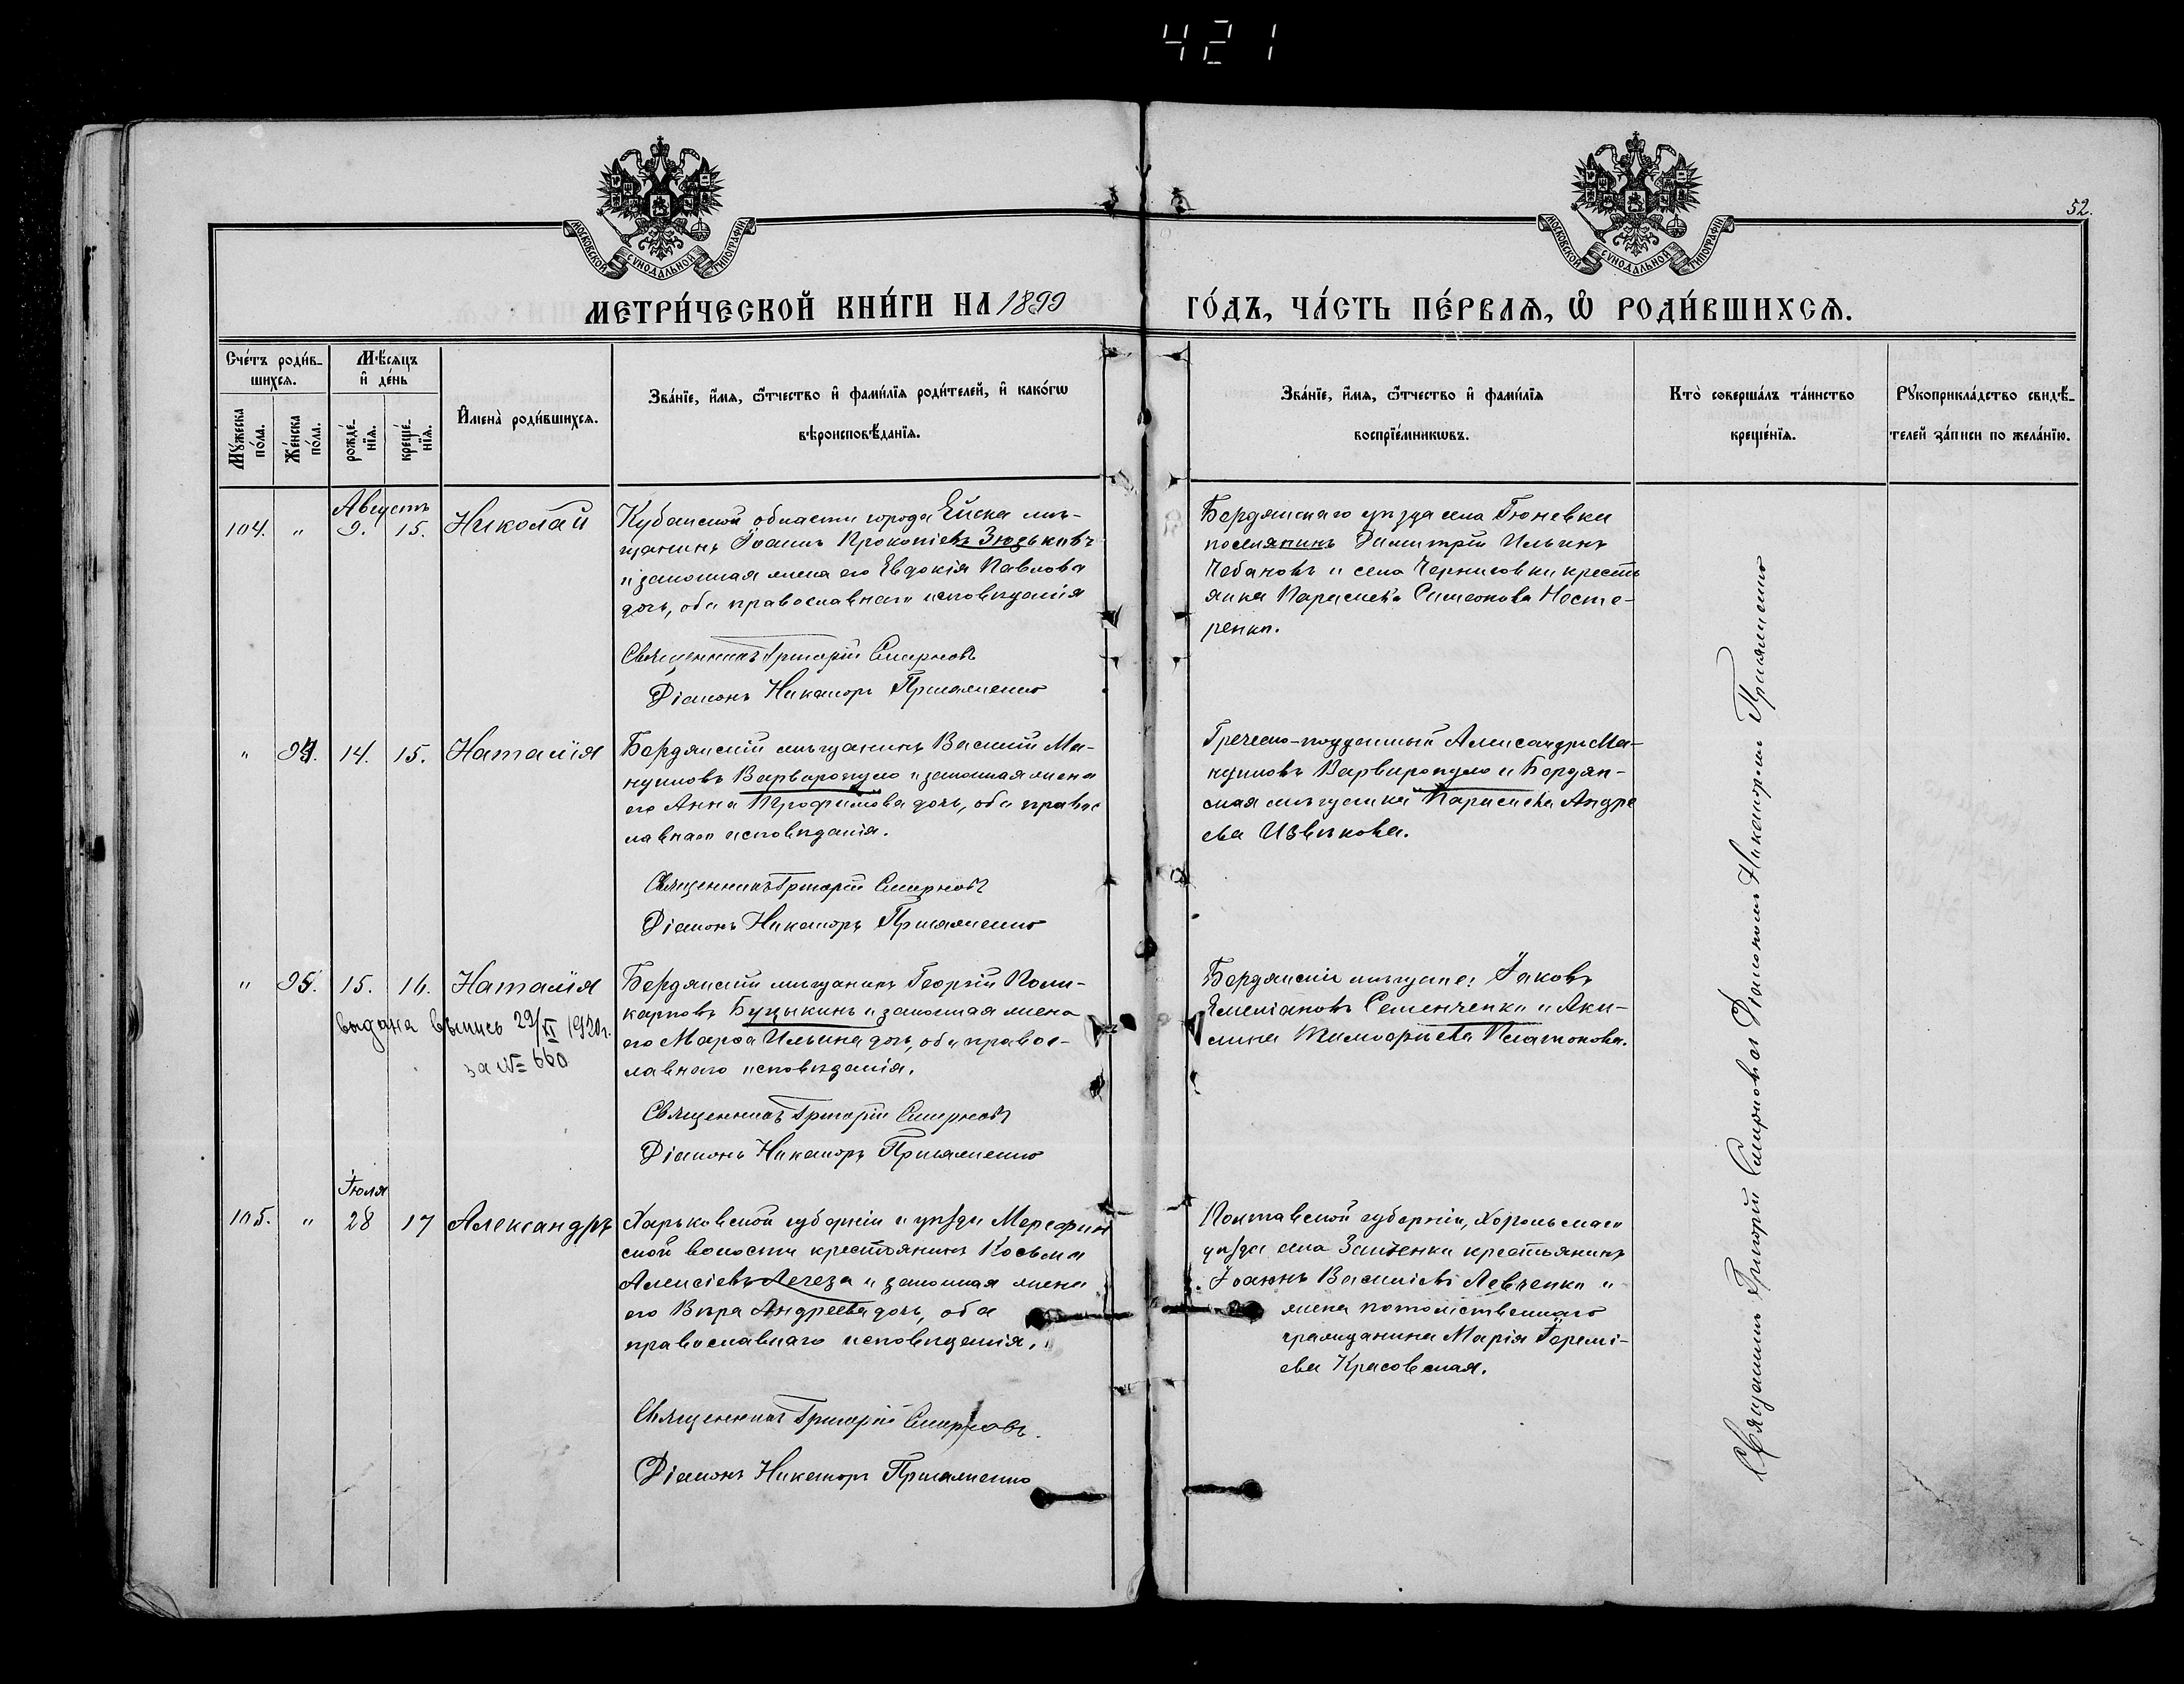 421
52.
МОСКОВСКОЙ СѴНОДАЛЬНОЙ ТИПОГРАФІИ
МОСКОВСКОЙ СѴНОДАЛЬНОЙ ТИПОГРАФІИ
МЕТРИ́ЧЕСКОЙ КНИ́ГИ НА 1899
ГО́ДЪ, ЧА́СТЬ ПЕ́РВАѦ, Ѡ҆ РОДИ́ВШИХСѦ.
Сче́тъ роди́в-
шихсѧ.
Мѣ́сѧцъ
и҆ де́нь
Мꙋ́жеска по́ла.
Же́нска по́ла.
рожде́-нїѧ.
креще́-нїѧ.
И҆мена̀ роди́вшихсѧ.
Зва́нїе, и҆́мѧ, ѻ҆́тчество и҆ фами́лїѧ роди́телей, и҆ како́гѡ
вѣроисповѣ́данїѧ.
Зва́нїе, и҆́мѧ, ѻ҆́тчество и҆ фами́лїѧ
воспрїе́мникѡвъ.
Кто̀ соверша́лъ та́инство
креще́нїѧ.
Рꙋкоприкла́дство свидѣ́-
телей за́писи по жела́нїю.
Августъ
104. " 9. 15. Николай
Кубанской области города Ейска мѣ-
щанинъ Іоаннъ Прокопіевъ Зюзьковъ
и законная жена его Евдокія Павлова
дочь, оба православнаго исповѣданія
Священникъ Григорій Смирновъ
Діаконъ Никаноръ Пригалменко
Бердянскаго уѣзда села Гюневки
поселянинъ Димитрій Ильинъ
Чебановъ и села Черниговки кресть
янка Параскева Симеонова Несте-
ренко.
" 94. 14. 15. Наталія
Бердянскій мѣщанинъ Василій Ма-
нуиловъ Варваропуло и законная жена
его Анна Трофимова дочь, оба правос
лавнаго исповѣданія.
Священникъ Григорій Смирновъ
Діаконъ Никаноръ
Греческо-подданный Александръ Ма-
нуиловъ Варваропуло и Бердян-
ская мѣщанка Параскева Андре
ева Извѣкова.
" 95. 15. 16. Наталія
выдана выпись 29/XI 1920 г.
за № 660
Бердянскій мѣщанинъ Георгій Поли-
карповъ Буцыкинъ и законная жена
его Марѳа Ильина дочь, оба правос-
лавнаго исповѣданія.
Священникъ Григорій Смирновъ
Діаконъ Никаноръ
Бердянскіе мѣщане: Іаковъ
Емеліановъ Семенченко и Аки-
лина Тимоѳеева Платонова.
Іюля
105. " 28 17 Александръ
Харьковской губерніи и уѣзда Мерефин
ской волости крестьянинъ Косьма
Алексіевъ Легеза и законная жена
его Вѣра Андреева дочь, оба
православнаго исповѣданія.
Священникъ Григорій Смирновъ.
Діаконъ Никаноръ
Полтавской губерніи, Хорольскаго
уѣзда села крестьянинъ
Іоаннъ Василіевъ Левченко и
жена потомственнаго
гражданина Марія Іеремі-
ева Красовская.
Священникъ Григорій Смирновъ съ Діакономъ Никаноромъ